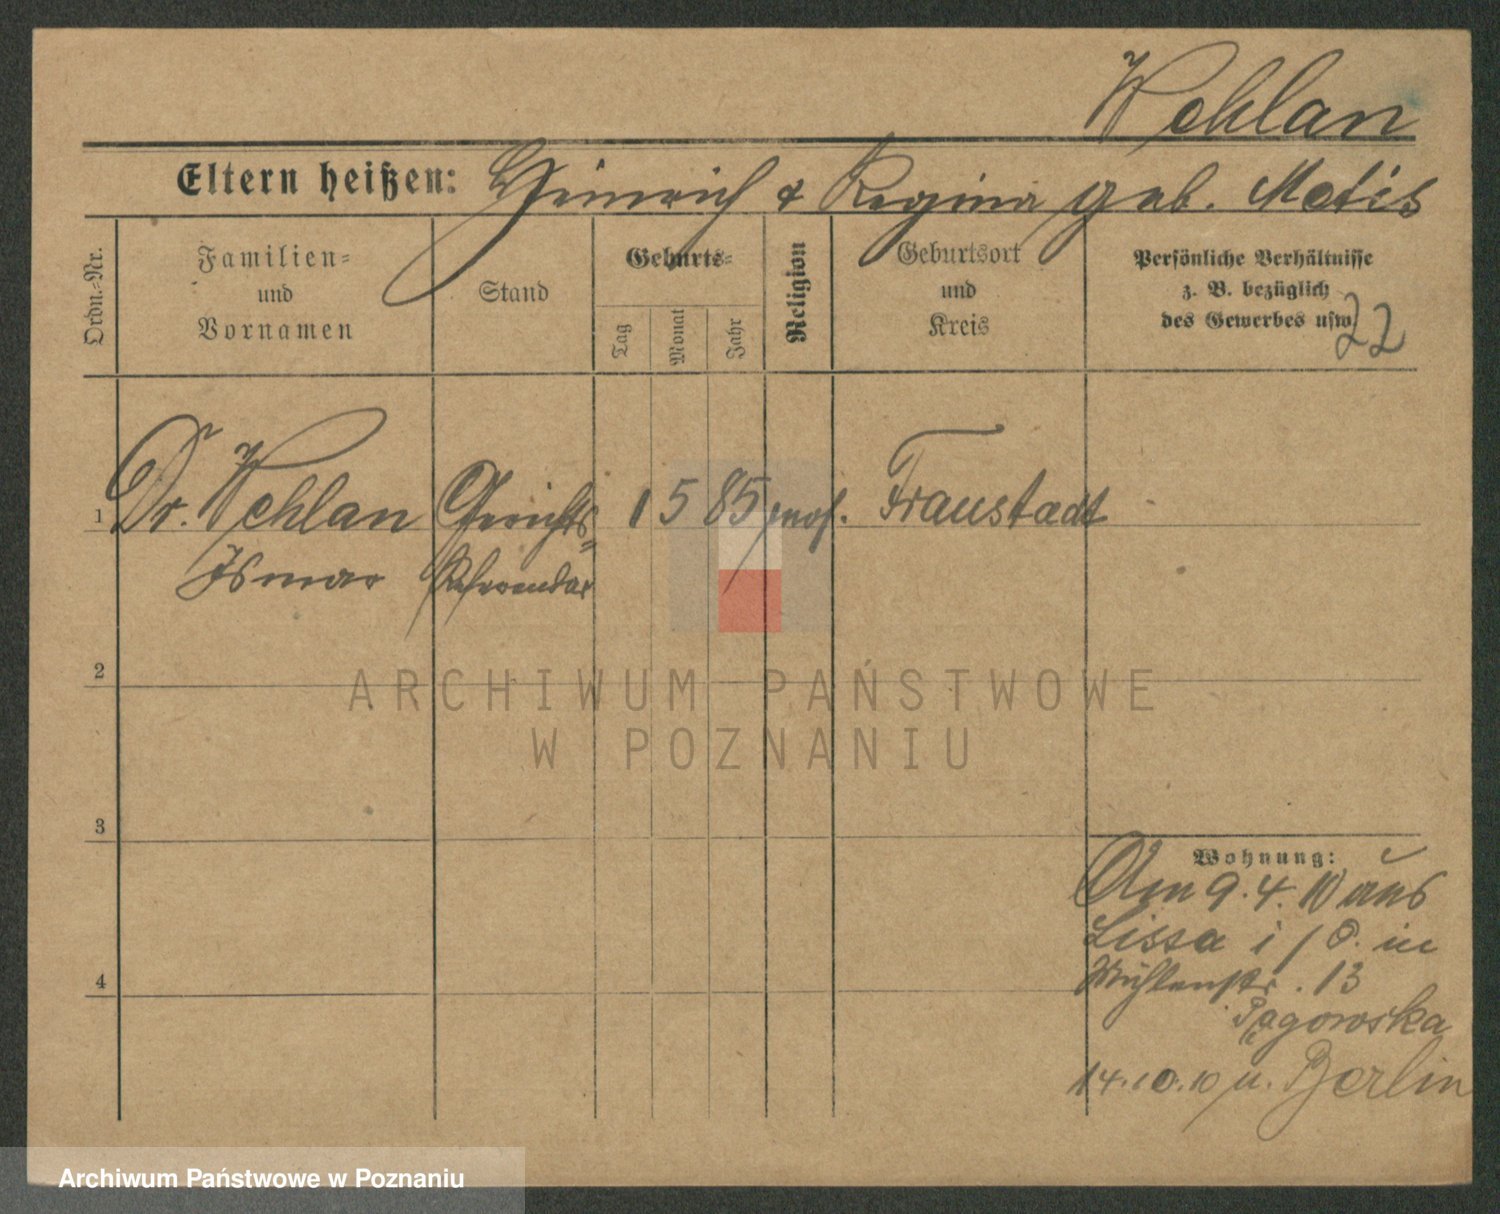 Wehlan
Eltern heißen: Heinrich & Regina geb. Matis
Ordn.-Nr.
Familien-
und
Vornamen
Stand
Geburts-
Tag
Monat
Jahr
Religion
Geburtsort
und
Kreis
Persönliche Verhältnisse
z. B. bezüglich
des Gewerbes usw.
22
1 Dr. Wehlan Gerichts- 1 5 85 mos. Fraustadt
Ismar Referendar
2
ARCHIWUM PAŃSTWOWE
W POZNANIU
3
Wohnung:
Am 9.4.10 aus
Lissa i/P. in
Mühlenstr. 13
4
Pągowska
14.10.10 n. Berlin
Archiwum Państwowe w Poznaniu